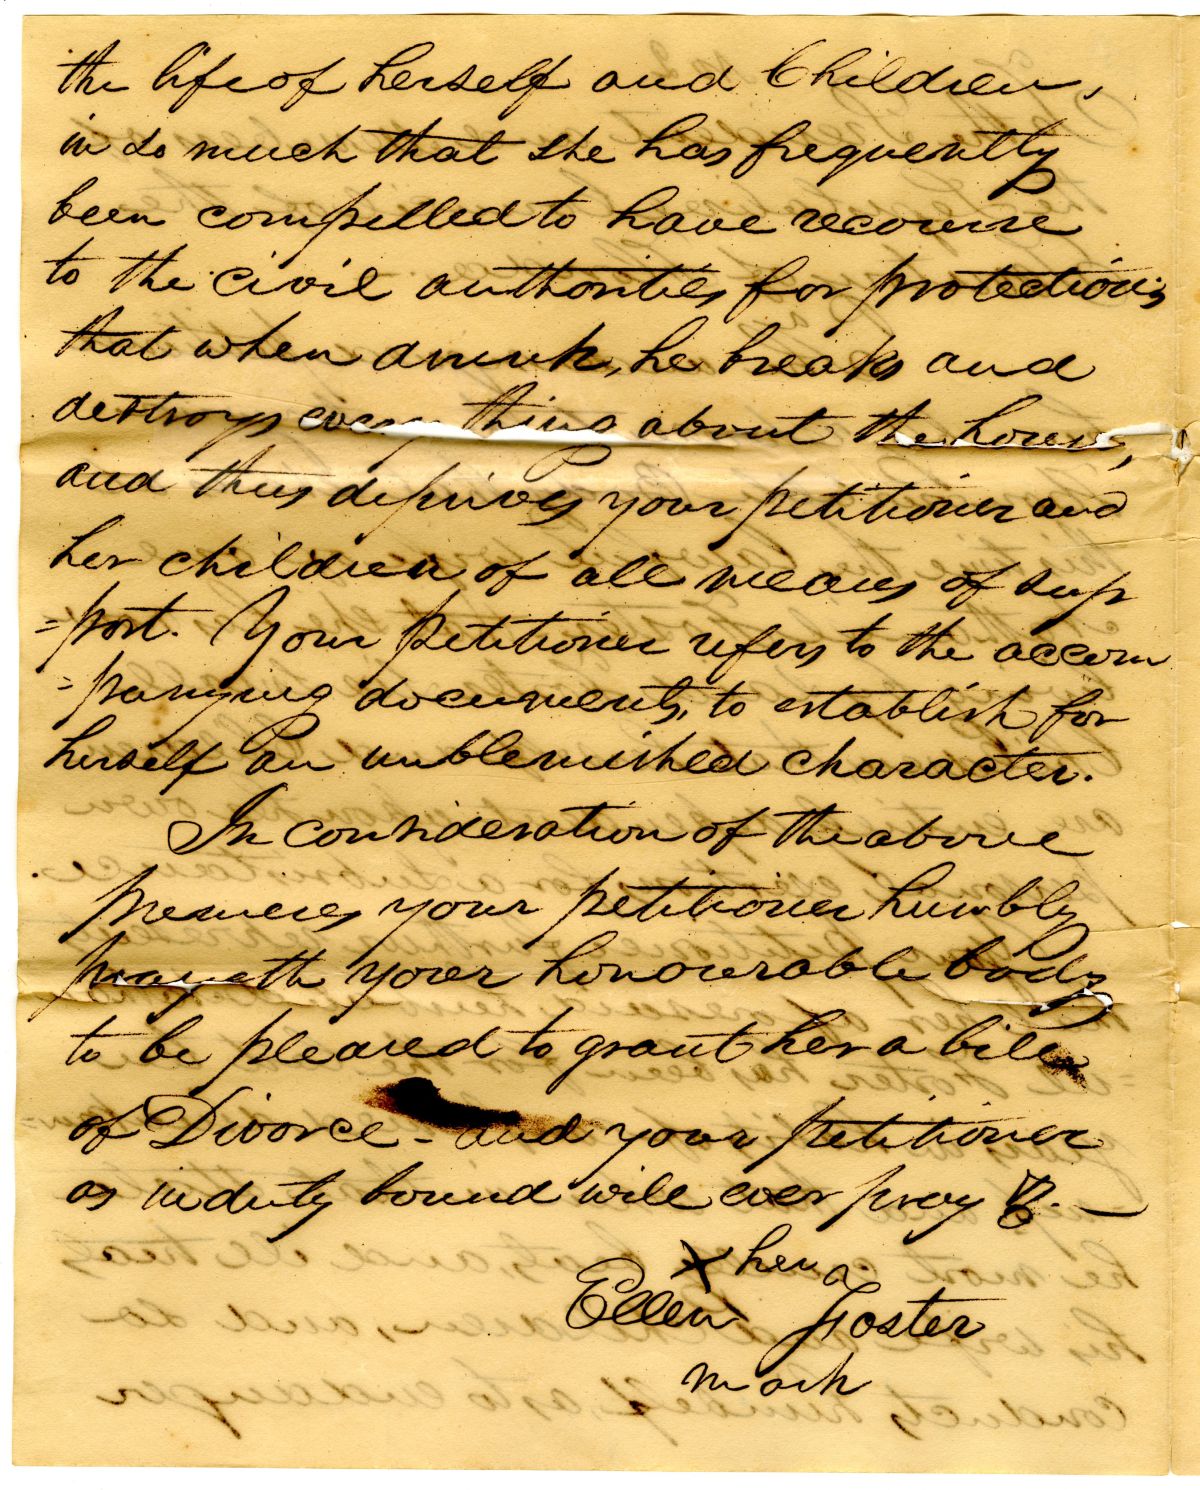 the life of herself and Children,
in so much that she has frequently
been compelled to have recourse
to the civil authorities for protection;
that when drunk, he breaks and
destroys every thing about the house,
and thus deprives your petitioner and
her children of all means of sup
=port. Your petitioner refers to the accom
=panying documents, to establish for
herself an unblemished character.
In consideration of the above
premises your petitioner humbly
prayeth your honourable body
to be pleased to grant her a bill
of Divorce - and your petitioner
as in duty bound will ever pray &. —
her
Ellen X Foster
mark